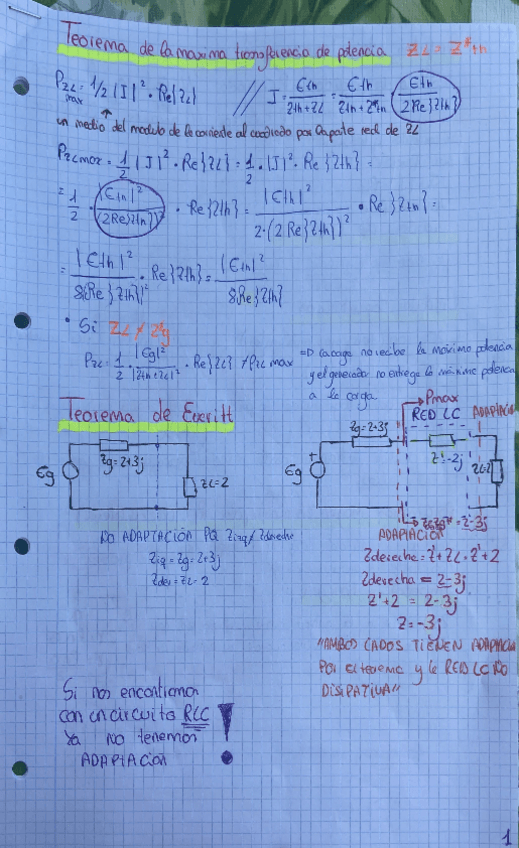 Teorema de la maxima transferencia de potencia ZL = Z*th
PZL max = 1/2 |I|² · Re{ZL} // I = Eth / Zth+ZL = Eth / Zth+Z*th = Eth / 2Re{Zth}
un medio del modulo de la corriente al cuadrado por la parte real de ZL
PZL max = 1/2 |I|² · Re{ZL} = 1/2 · |I|² · Re{Zth} =
= 1/2 · |Eth|² / (2Re{Zth})² · Re{Zth} = |Eth|² / 2·(2Re{Zth})² · Re{Zth} =
= |Eth|² / 8(Re{Zth})² · Re{Zth} = |Eth|² / 8Re{Zth}
· Si ZL ≠ Z*g
PZL = 1/2 · |Eg|² / |Zth+ZL|² · Re{ZL} ≠ PZL max => la carga no recibe la máxima potencia
y el generador no entrega la máxima potencia
a la carga
Teorema de Everitt
Eg
Zg=2+3j
ZL=2
NO ADAPTACIÓN PQ Zizq ≠ Zderecha
Zizq = Zg = 2+3j
Zder = ZL = 2
Pmax
RED LC
ADAPTACIÓN
Zg=2+3j
Eg
+
Z'=-2j
ZL=2
ZL=Zg* = 2-3j
ADAPTACIÓN
Zderecha = Z'+ZL = Z'+2
Zderecha = 2-3j
Z'+2 = 2-3j
Z=-3j
"AMBOS LADOS TIENEN ADAPTACIÓN
Por el teorema y la RED LC NO
DISIPATIVA"
Si nos encontramos
con un circuito RLC
ya no tenemos
ADAPTACIÓN
!
1